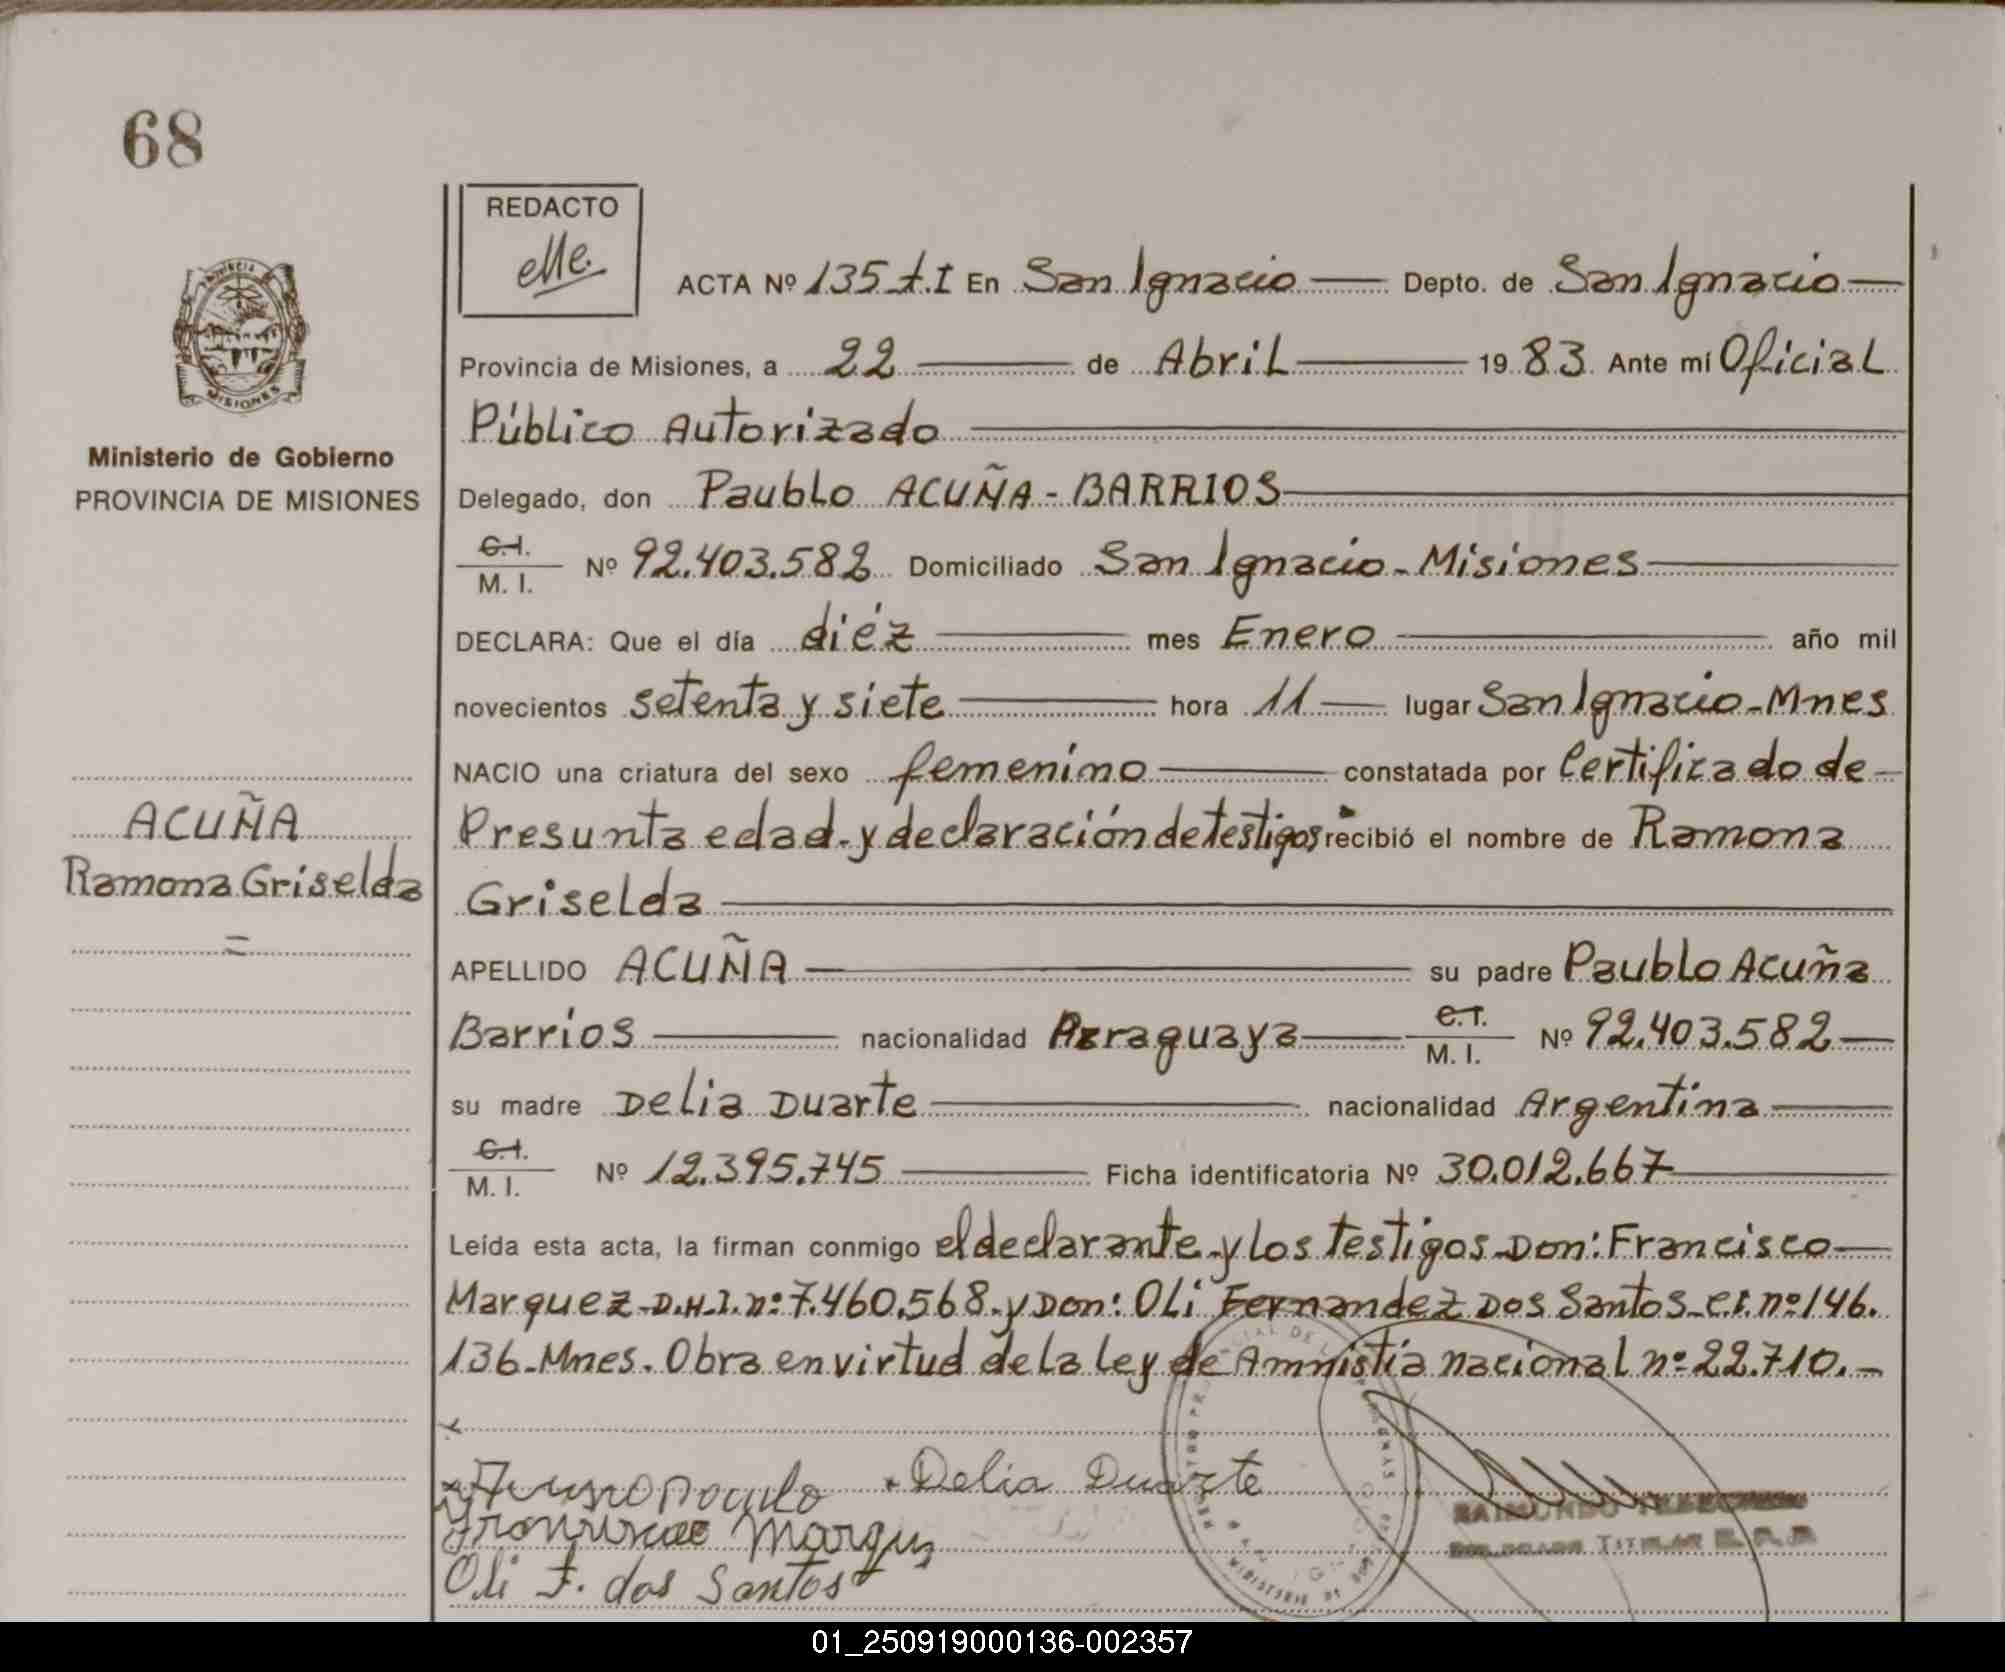 68
REDACTO
ACTA Nº 135.t.I En San Ignacio Depto. de San Ignacio
Provincia de Misiones, a 22 de Abril 1983 Ante mí Oficial
Público Autorizado
Ministerio de Gobierno
PROVINCIA DE MISIONES
Delegado, don Paublo ACUÑA-BARRIOS
C.I.
M. I. Nº 92.403.582 Domiciliado San Ignacio-Misiones
DECLARA: Que el día diéz mes Enero año mil
novecientos setenta y siete hora 11 lugar San Ignacio-Mnes
NACIO una criatura del sexo femenino constatada por Certificado de
Presunta edad-y declaración de testigos recibió el nombre de Ramona
Griselda
ACUÑA
Ramona Griselda
APELLIDO ACUÑA su padre Paublo Acuña
Barrios nacionalidad Paraguaya C.I.
M. I. Nº 92.403.582
su madre Delia Duarte nacionalidad Argentina
C.I.
M. I. Nº 12.395.745 Ficha identificatoria Nº 30.012.667
Leída esta acta, la firman conmigo el declarante y los testigos-Don: Francisco
Marquez-D.N.I.nº:7.460.568-y Don: Oli Fernandez Dos Santos-C.I.nº146.
136-Mnes. Obra en virtud de la ley de Amnistía nacional nº22.710.-
Delia Duarte
Oli F. dos Santos
RAIMUNDO
TITULAR
MISIONES
01_250919000136-002357